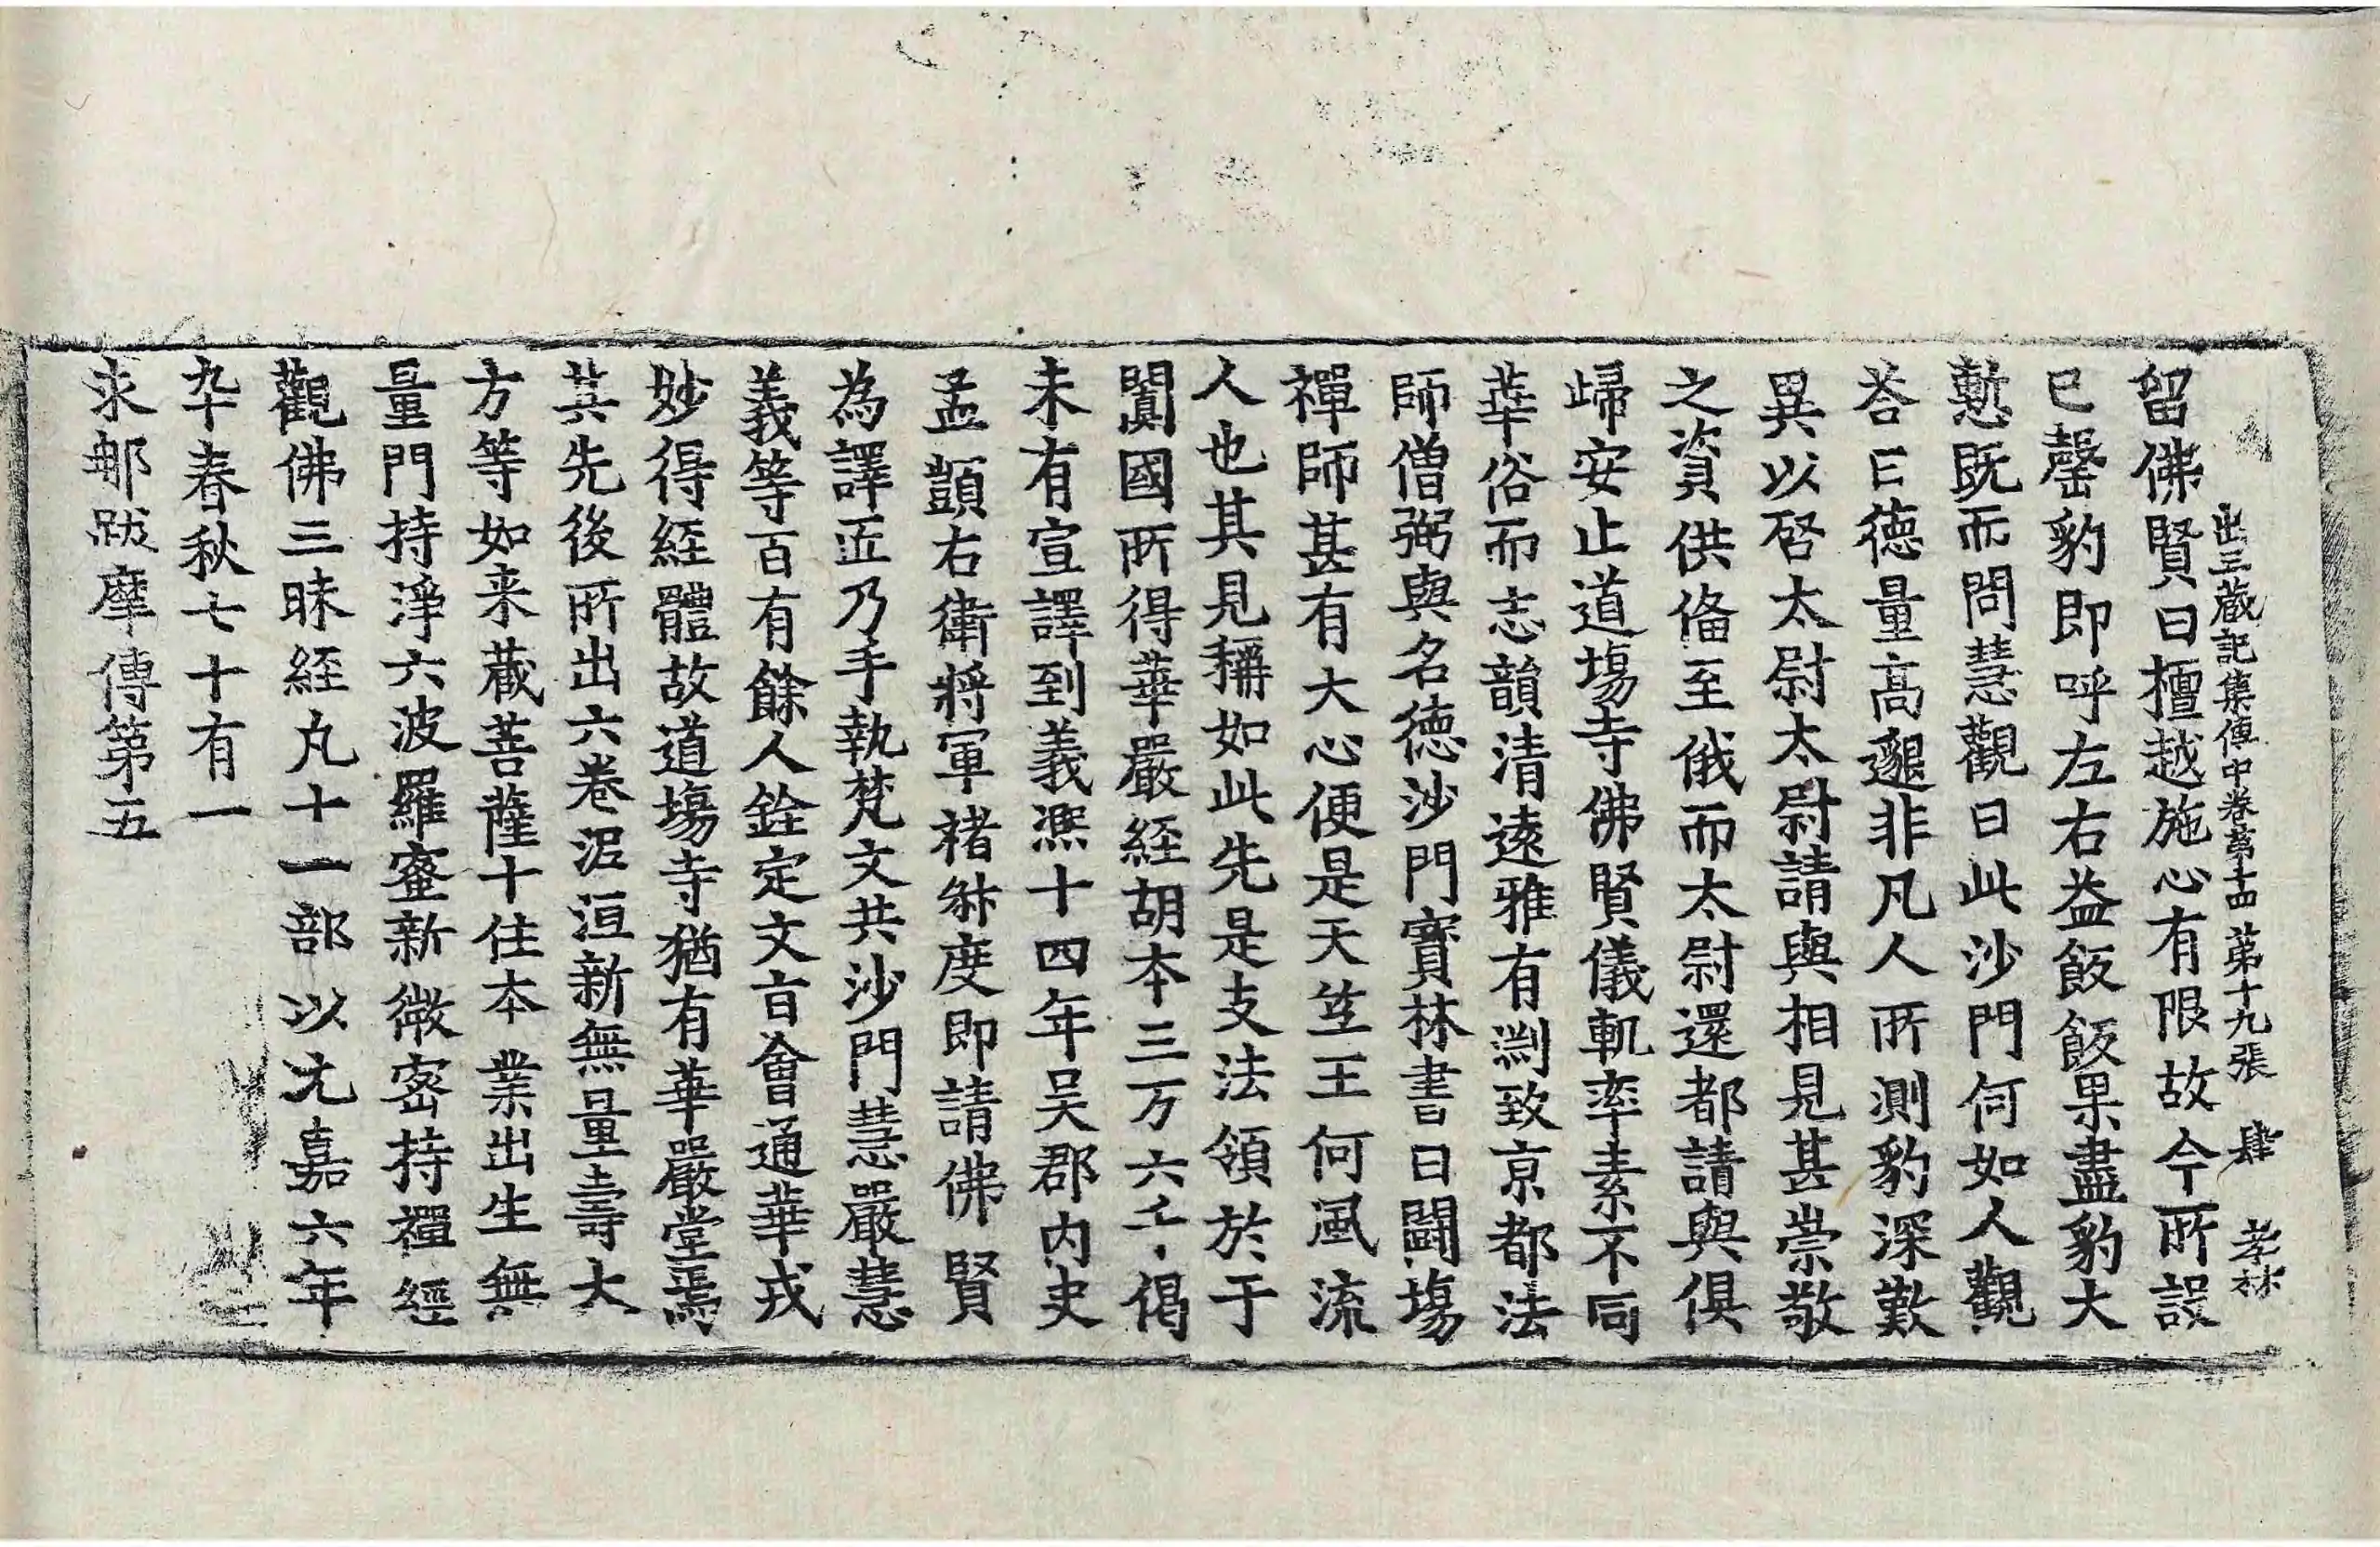 出三藏記集傳中卷第十四 第十九張 肆 孝林
留佛賢曰檀越施心有限故今所設
已罄豹即呼左右益飯飯果盡豹大
慙既而問慧觀曰此沙門何如人觀
荅曰德量高邈非凡人所測豹深歎
異以啓太尉太尉請與相見甚崇敬
之資供俻至俄而太尉還都請與俱
歸安止道場寺佛賢儀軌率素不同
華俗而志韻清遠雅有淵致京都法
師僧弼與名德沙門寳林書曰鬪塲
禪師甚有大心便是天竺王何風流
人也其見稱如此先是支法領於于
闐國所得華嚴経胡本三万六千偈
未有宣譯到義熈十四年吴郡内史
孟顗右衛將軍禇叔度即請佛賢
為譯匠乃手執梵文共沙門慧嚴慧
義等百有餘人銓定文旨會通華戎
妙得経體故道塲寺猶有華嚴堂焉
其先後所出六卷泥洹新無量壽大
方等如来藏菩薩十住本業出生無
量門持淨六波羅蜜新微密持禪經
觀佛三昧経凡十一部以元嘉六年
卒春秋七十有一
求那跋摩傳第五